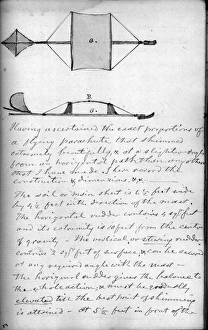 a.
B
a.
Having ascertained the exact proportions of
a flying parachute that skimmed
extremely beautifully, & at a slighter angle
from an horizontal path than any other
that I have made I here record the
construction & dimensions, &c.
The sail or main sheet is 4½ feet wide
by 4½ feet with direction of the mast.
The horizontal rudder contains 4 sq feet
and its extremity is 9 feet from the center
of gravity. The vertical or steering rudder
contains 2 sqft of surface, & can be secured
at any required angle with the mast
The horizontal rudder gives the balance to
the whole action, & must be gradually
elevated till the best point of skimming
is attained. At 5½ feet in front of the